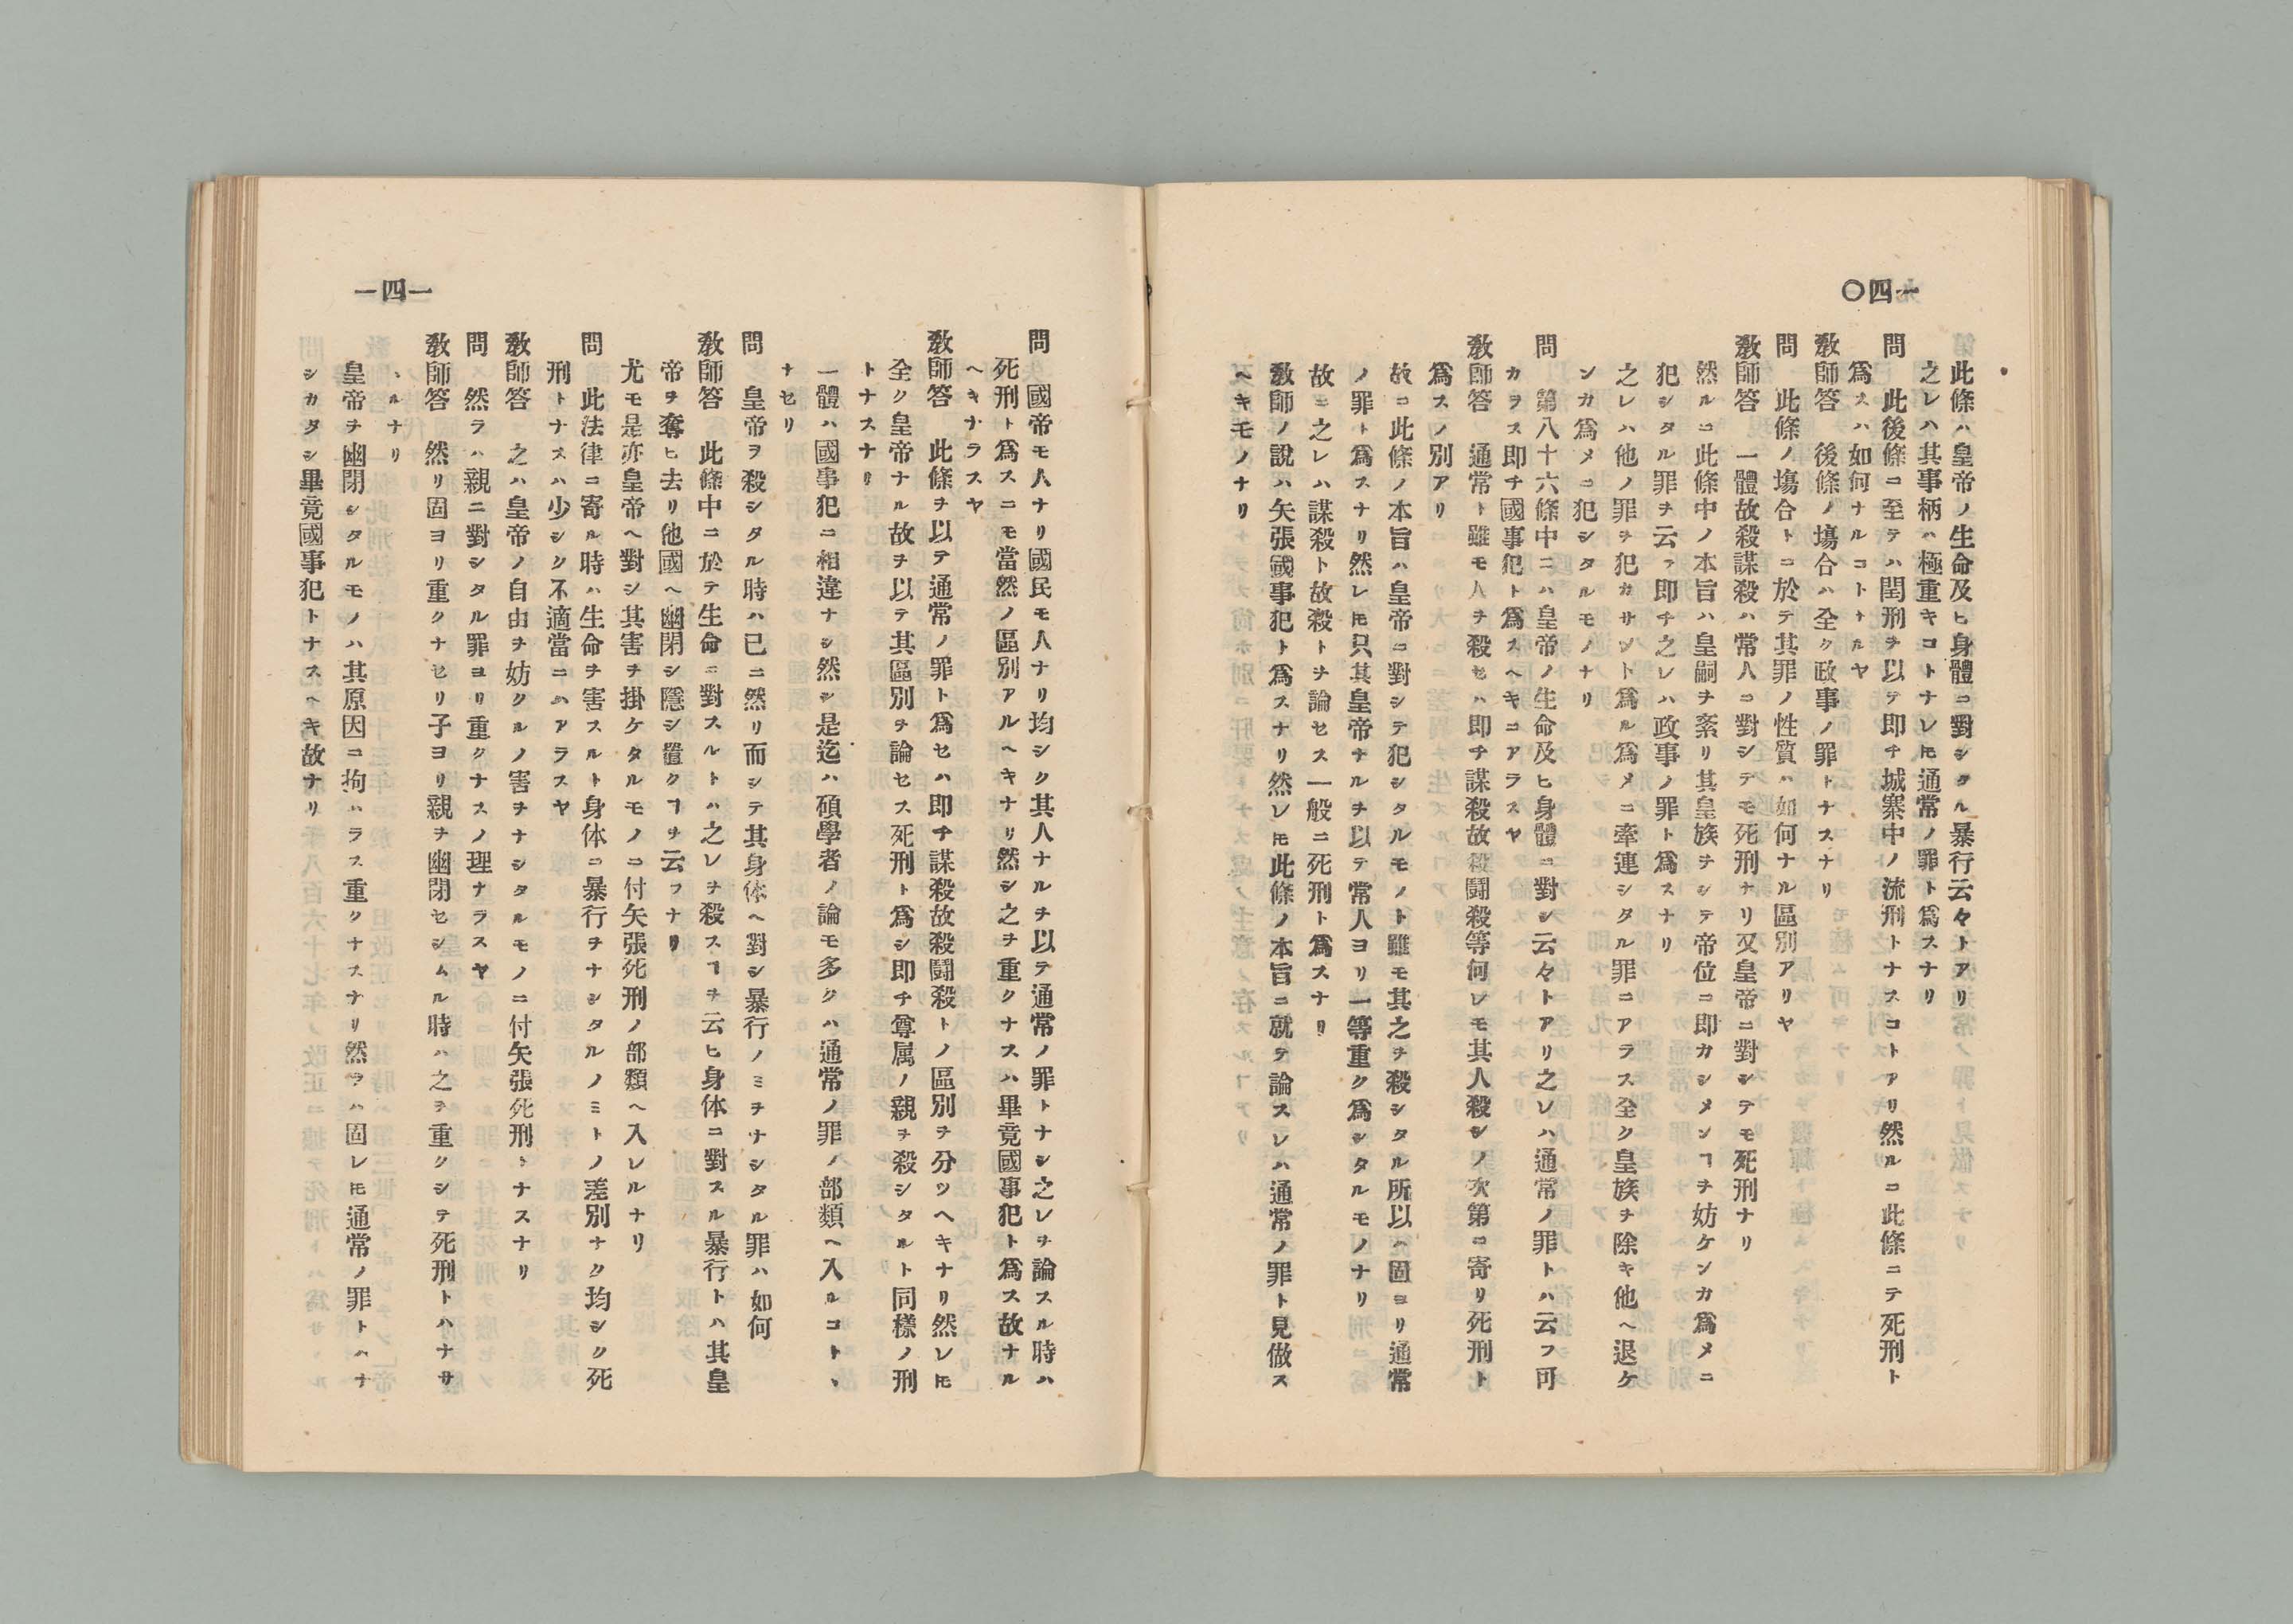 一四〇
此條ハ皇帝ノ生命及ヒ身體ニ對シタル暴行云々トアリ
之レハ其事柄ハ極重キコトナレ𪜈通常ノ罪ト爲スナリ
問　此後條ニ至テハ閏刑ヲ以テ即チ城寨中ノ流刑トナスコトアリ然ルニ此條ニテ死刑ト
爲スハ如何ナルコトナルヤ
教師答　後條ノ塲合ハ全ク政事ノ罪トナスナリ
問　此條ノ塲合トニ於テ其罪ノ性質ハ如何ナル區別アリヤ
教師答　一體故殺謀殺ハ常人ニ對シテモ死刑ナリ又皇帝ニ對シテモ死刑ナリ
然ルニ此條中ノ本旨ハ皇嗣ヲ紊リ其皇族ヲシテ帝位ニ即カシメンヿヲ妨ケンカ爲メニ
犯シタル罪ヲ云フ即チ之レハ政事ノ罪ト爲スナリ
之レハ他ノ罪ヲ犯カサント爲ル爲メニ牽連シタル罪ニアラス全ク皇族ヲ除キ他ヘ退ケ
ンカ爲メニ犯シタルモノナリ
問　第八十六條中ニハ皇帝ノ生命及ヒ身體ニ對シ云々トアリ之レハ通常ノ罪トハ云フ可
カラス即チ國事犯ト爲スヘキニアラスヤ
教師答　通常ト雖モ人ヲ殺セハ即チ謀殺故殺鬪殺等何レモ其人殺シノ次第ニ寄リ死刑ト
爲スノ別アリ
故ニ此條ノ本旨ハ皇帝ニ對シテ犯シタルモノト雖モ其之ヲ殺シタル所以ハ固ヨリ通常
ノ罪ト爲スナリ然レ𪜈只其皇帝ナルヲ以テ常人ヨリ一等重ク爲シタルモノナリ
故ニ之レハ謀殺ト故殺トヲ論セス一般ニ死刑ト爲スナリ
教師ノ說ハ矢張國事犯ト爲スナリ然レ𪜈此條ノ本旨ニ就テ論スレハ通常ノ罪ト見做ス
ヘキモノナリ
一四一
問　國帝モ人ナリ國民モ人ナリ均シク其人ナルヲ以テ通常ノ罪トナシ之レヲ論スル時ハ
死刑ト爲スニモ當然ノ區別アルヘキナリ然シ之ヲ重クナスハ畢竟國事犯ト爲ス故ナル
ヘキナラスヤ
教師答　此條ヲ以テ通常ノ罪ト爲セハ即チ謀殺故殺鬪殺トノ區別ヲ分ツヘキナリ然レ𪜈
全ク皇帝ナル故ヲ以テ其區別ヲ論セス死刑ト爲シ即チ尊属ノ親ヲ殺シタルト同樣ノ刑
トナスナリ
一體ハ國事犯ニ相違ナシ然シ是迄ハ碩學者ノ論モ多クハ通常ノ罪ノ部類ヘ入ルコトヽ
ナセリ
問　皇帝ヲ殺シタル時ハ已ニ然リ而シテ其身体ヘ對シ暴行ノミヲナシタル罪ハ如何
教師答　此條中ニ於テ生命ニ對スルトハ之レヲ殺スヿヲ云ヒ身体ニ對スル暴行トハ其皇
帝ヲ奪ヒ去リ他國ヘ幽閉シ隱シ置クヿヲ云フナリ
尤モ是亦皇帝ヘ對シ其害ヲ掛ケタルモノニ付矢張死刑ノ部類ヘ入レルナリ
問　此法律ニ寄ル時ハ生命ヲ害スルト身体ニ暴行ヲナシタルノミトノ差別ナク均シク死
刑トナスハ少シク不適當ニハアラスヤ
教師答　之ハ皇帝ノ自由ヲ妨クルノ害ヲナシタルモノニ付矢張死刑トナスナリ
問　然ラハ親ニ對シタル罪ヨリ重クナスノ理ナラスヤ
教師答　然リ固ヨリ重クナセリ子ヨリ親ヲ幽閉セシムル時ハ之ヲ重クシテ死刑トハナサ
ヽルナリ
皇帝ヲ幽閉シタルモノハ其原因ニ拘ハラス重クナスナリ然ラハ固レ𪜈通常ノ罪トハナ
シカタシ畢竟國事犯トナスヘキ故ナリ